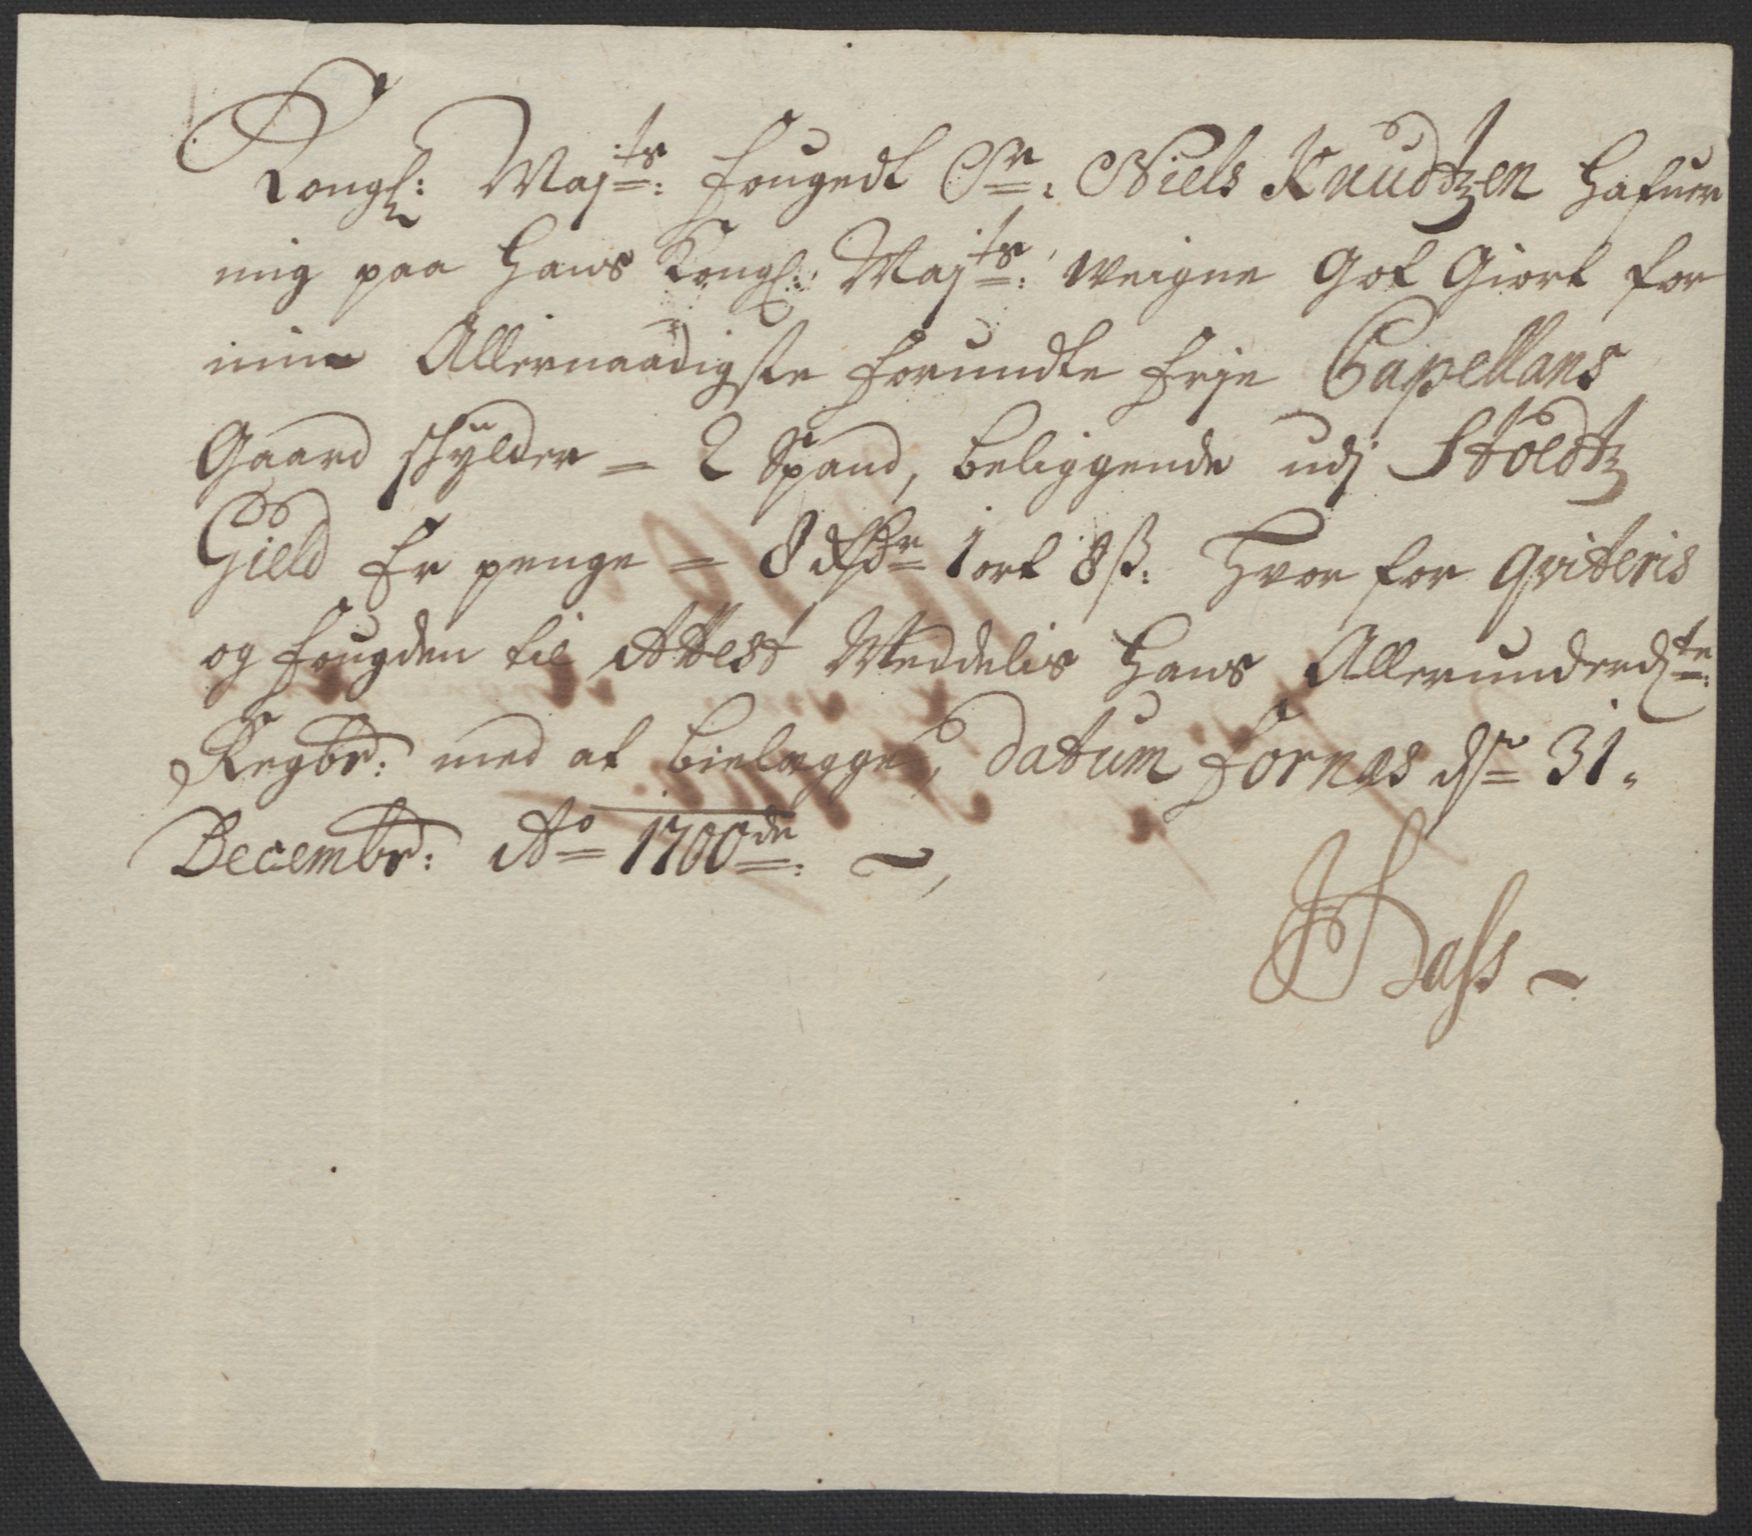 Kongl: Maj:ts: fougedt Sr: Niels Knudtzen hafuer
mig paa hans Kongl: Maj:ts: weigne got giort for
min Allernaadigste forundte frje Capellans
Gaard skylder = 2 Spand, beliggende udj Stoedtz
Gield Er penge = 8 rdr 1 ort 8 ß: Hvor for qviteris
og fougden til Attest Meddelis hans Allerunderd:te:
Regbr: med at bielegge, datum Fornes d: 31.
Decembr: Ao 1700de: ~,
JHass ~